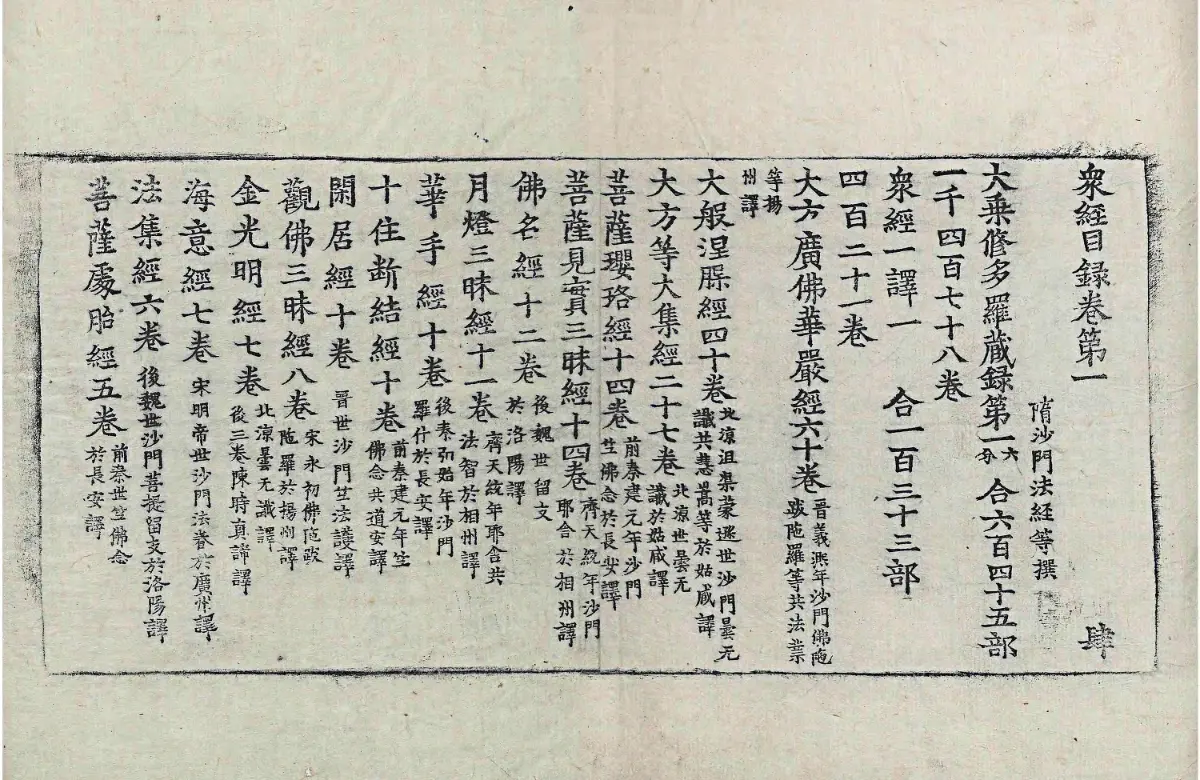 衆經目録卷第一　肆
隋沙門法經等撰
大乗修多羅藏録第一六分　合六百四十五部
一千四百七十八卷
衆經一譯一　合一百三十三部
四百二十一卷
大方廣佛華嚴經六十卷　晋義熙年沙門佛陁
跋陁羅等共法業
等揚
州譯
大般涅槃經四十卷　北凉沮渠蒙遜世沙門曇无
讖共慧嵩等於姑臧譯
大方等大集經二十七卷　北凉世曇无
讖於姑臧譯
菩薩瓔珞經十四卷　前秦建元年沙門
竺佛念於長安譯
菩薩見實三昧經十四卷　齊天統年沙門
耶舍於相州譯
佛名經十二卷　後魏世留支
於洛陽譯
月燈三昧經十一卷　齊天統年耶舍共
法智於相州譯
華手經十卷　後秦弘始年沙門
羅什於長安譯
十住断結經十卷　前秦建元年竺
佛念共道安譯
閑居經十卷　晋世沙門竺法護譯
觀佛三昧經八卷　宋永初佛陁跋
陁羅於揚州譯
金光明經七卷　北凉曇无讖譯
後三卷陳時真諦譯
海意經七卷　宋明帝世沙門法眷於廣州譯
法集經六卷　後魏世沙門菩提留支於洛陽譯
菩薩處胎經五卷　前秦世竺佛念
於長安譯